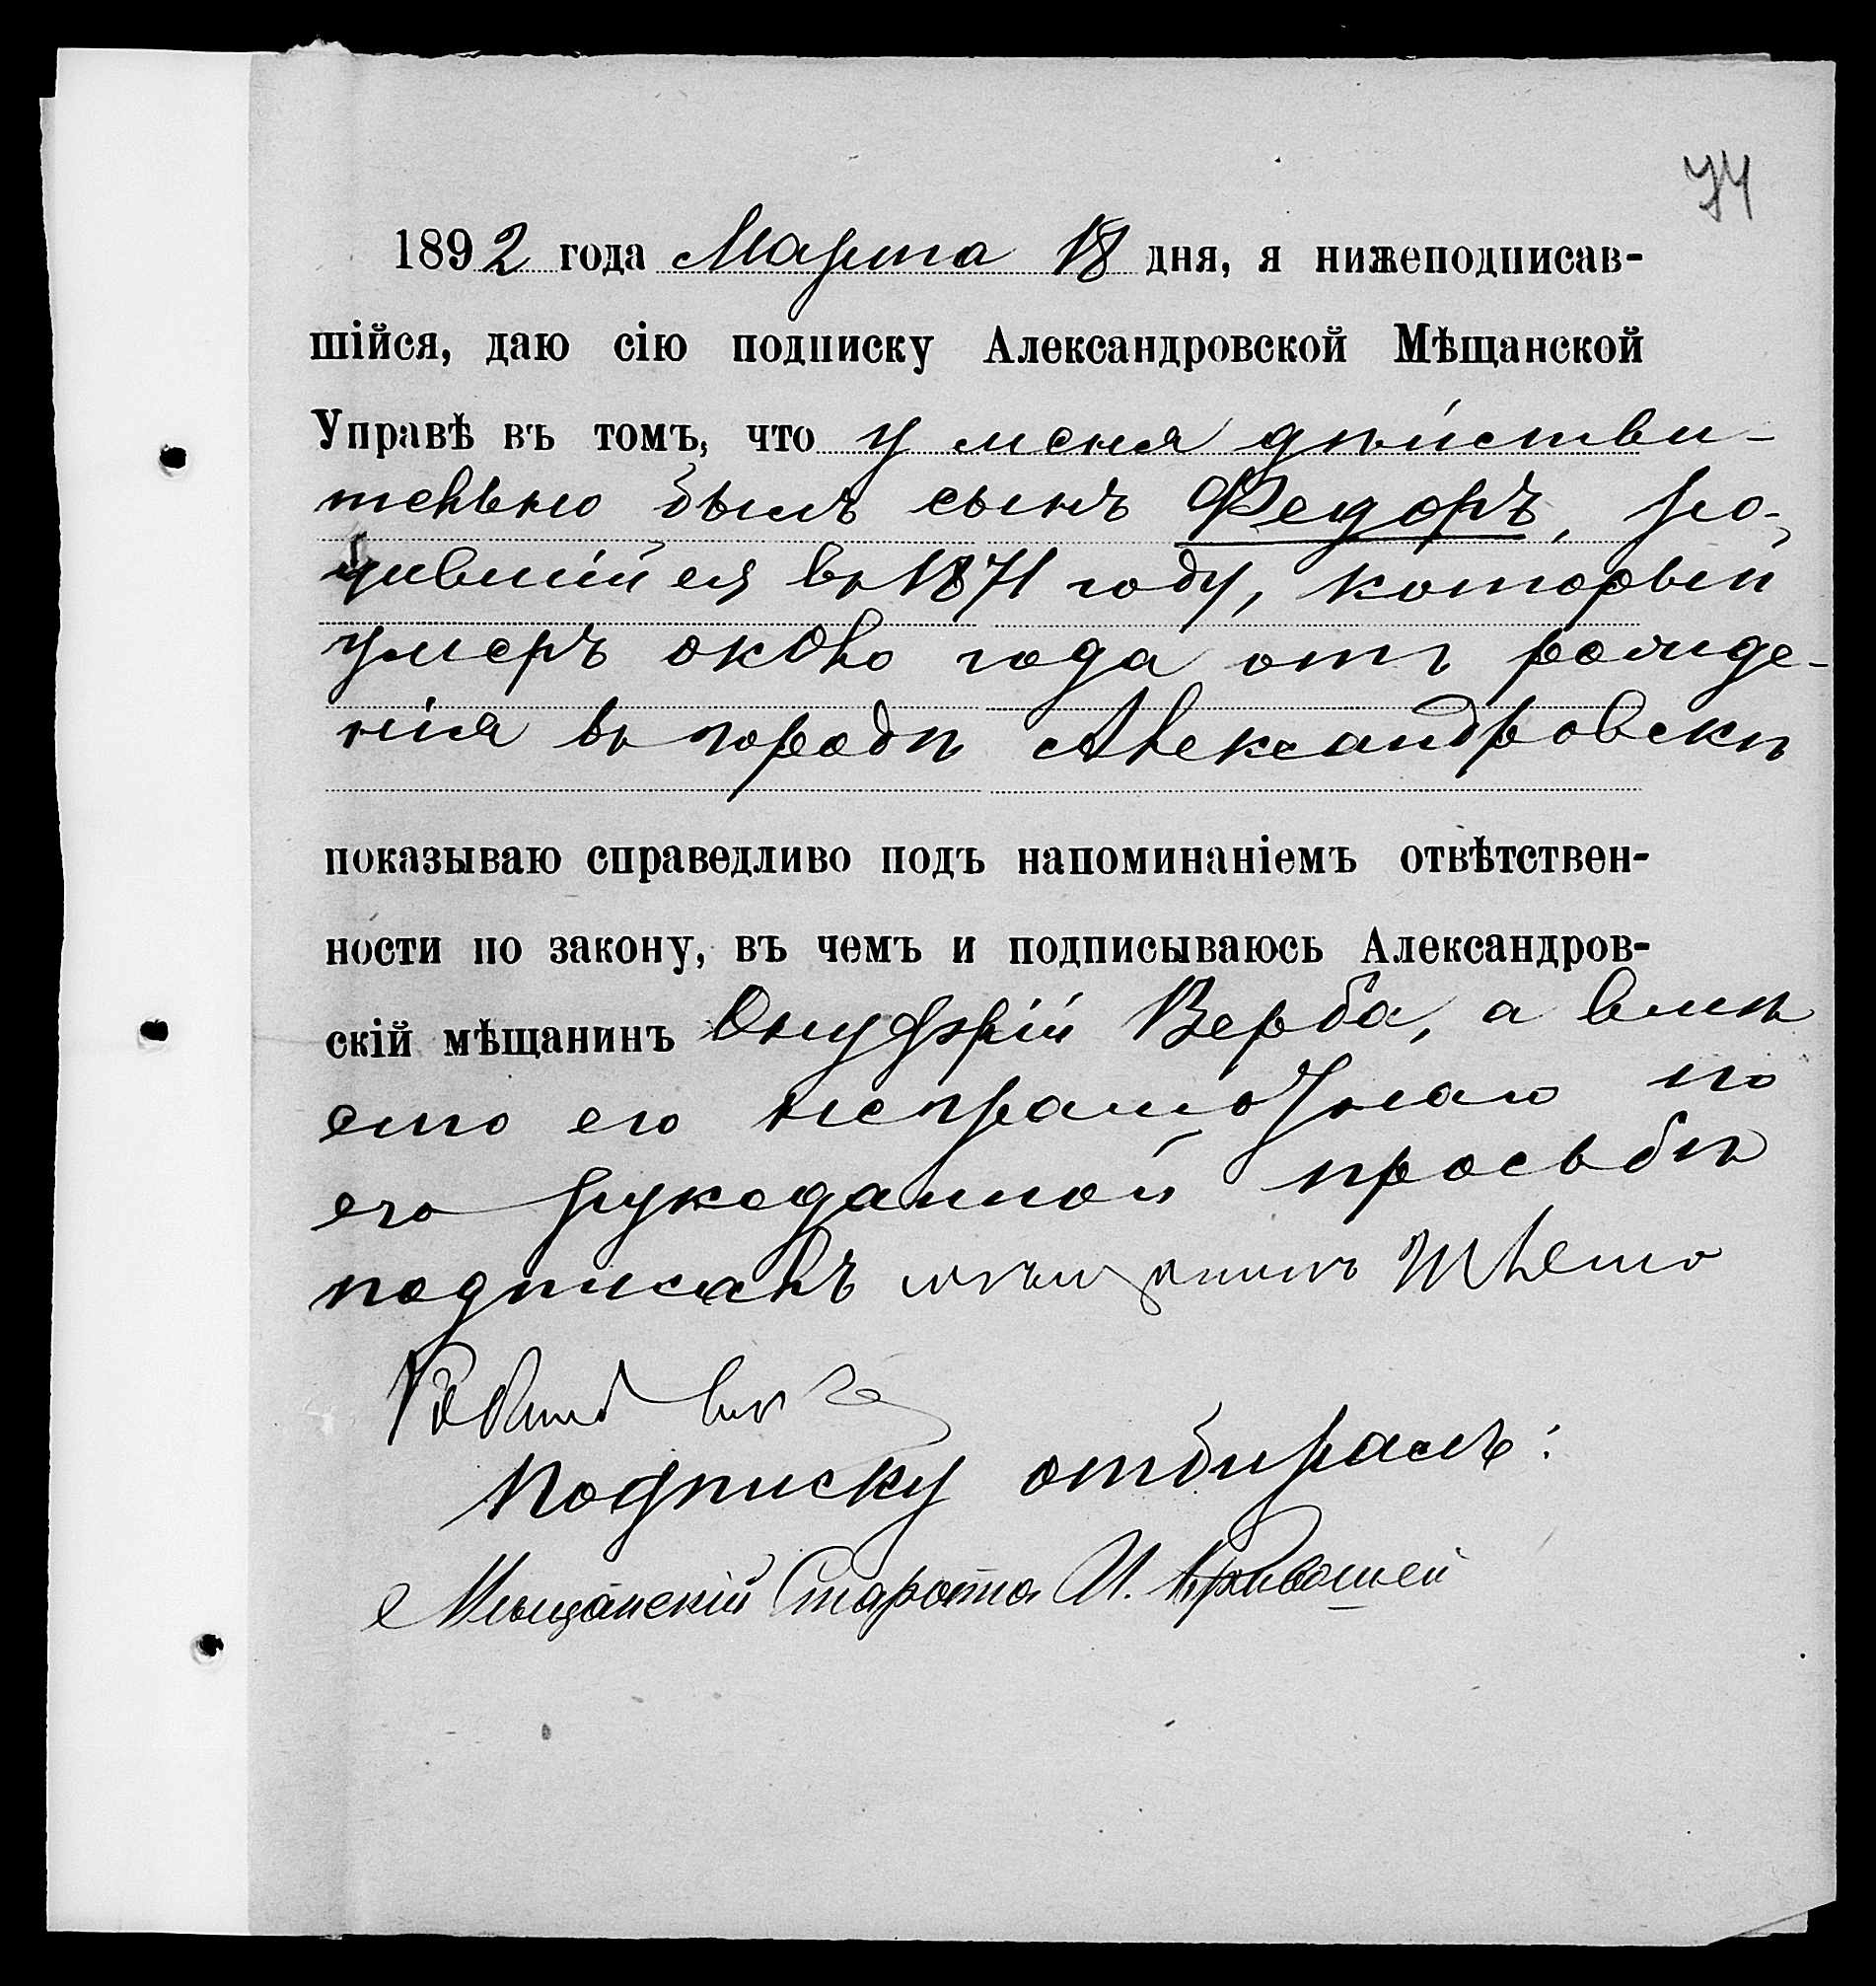 74
1892 года Марта 18 дня, я нижеподписав-
шійся, даю сію подписку Александровской Мѣщанской
Управѣ въ томъ, что у меня дѣйстви-
тельно былъ сынъ Федоръ, ро-
дившійся въ 1871 году, который
умеръ около года отъ рожде-
нія въ городѣ Александровскѣ
показываю справедливо подъ напоминаніемъ отвѣтствен-
ности по закону, въ чемъ и подписываюсь Александров-
скій мѣщанинъ Онуфрій Верба, а вмѣ
сто его неграмотнаго по
его рукоданной просьбѣ
подписалъ мѣщанинъ
Подписку отбиралъ:
Мѣщанскій Староста И. Кривошей